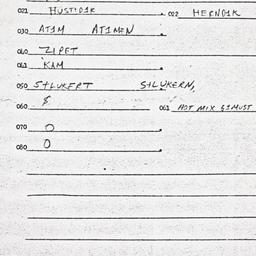 021 HUSTIDIK 022 HERNDIK
030 ATIM ATIMEN
040 ZIPET
041 KAM
050 S+LUKEPT S+LUKERN,
060 $ 061 HOT MIX GIMUST
070 O
080 O